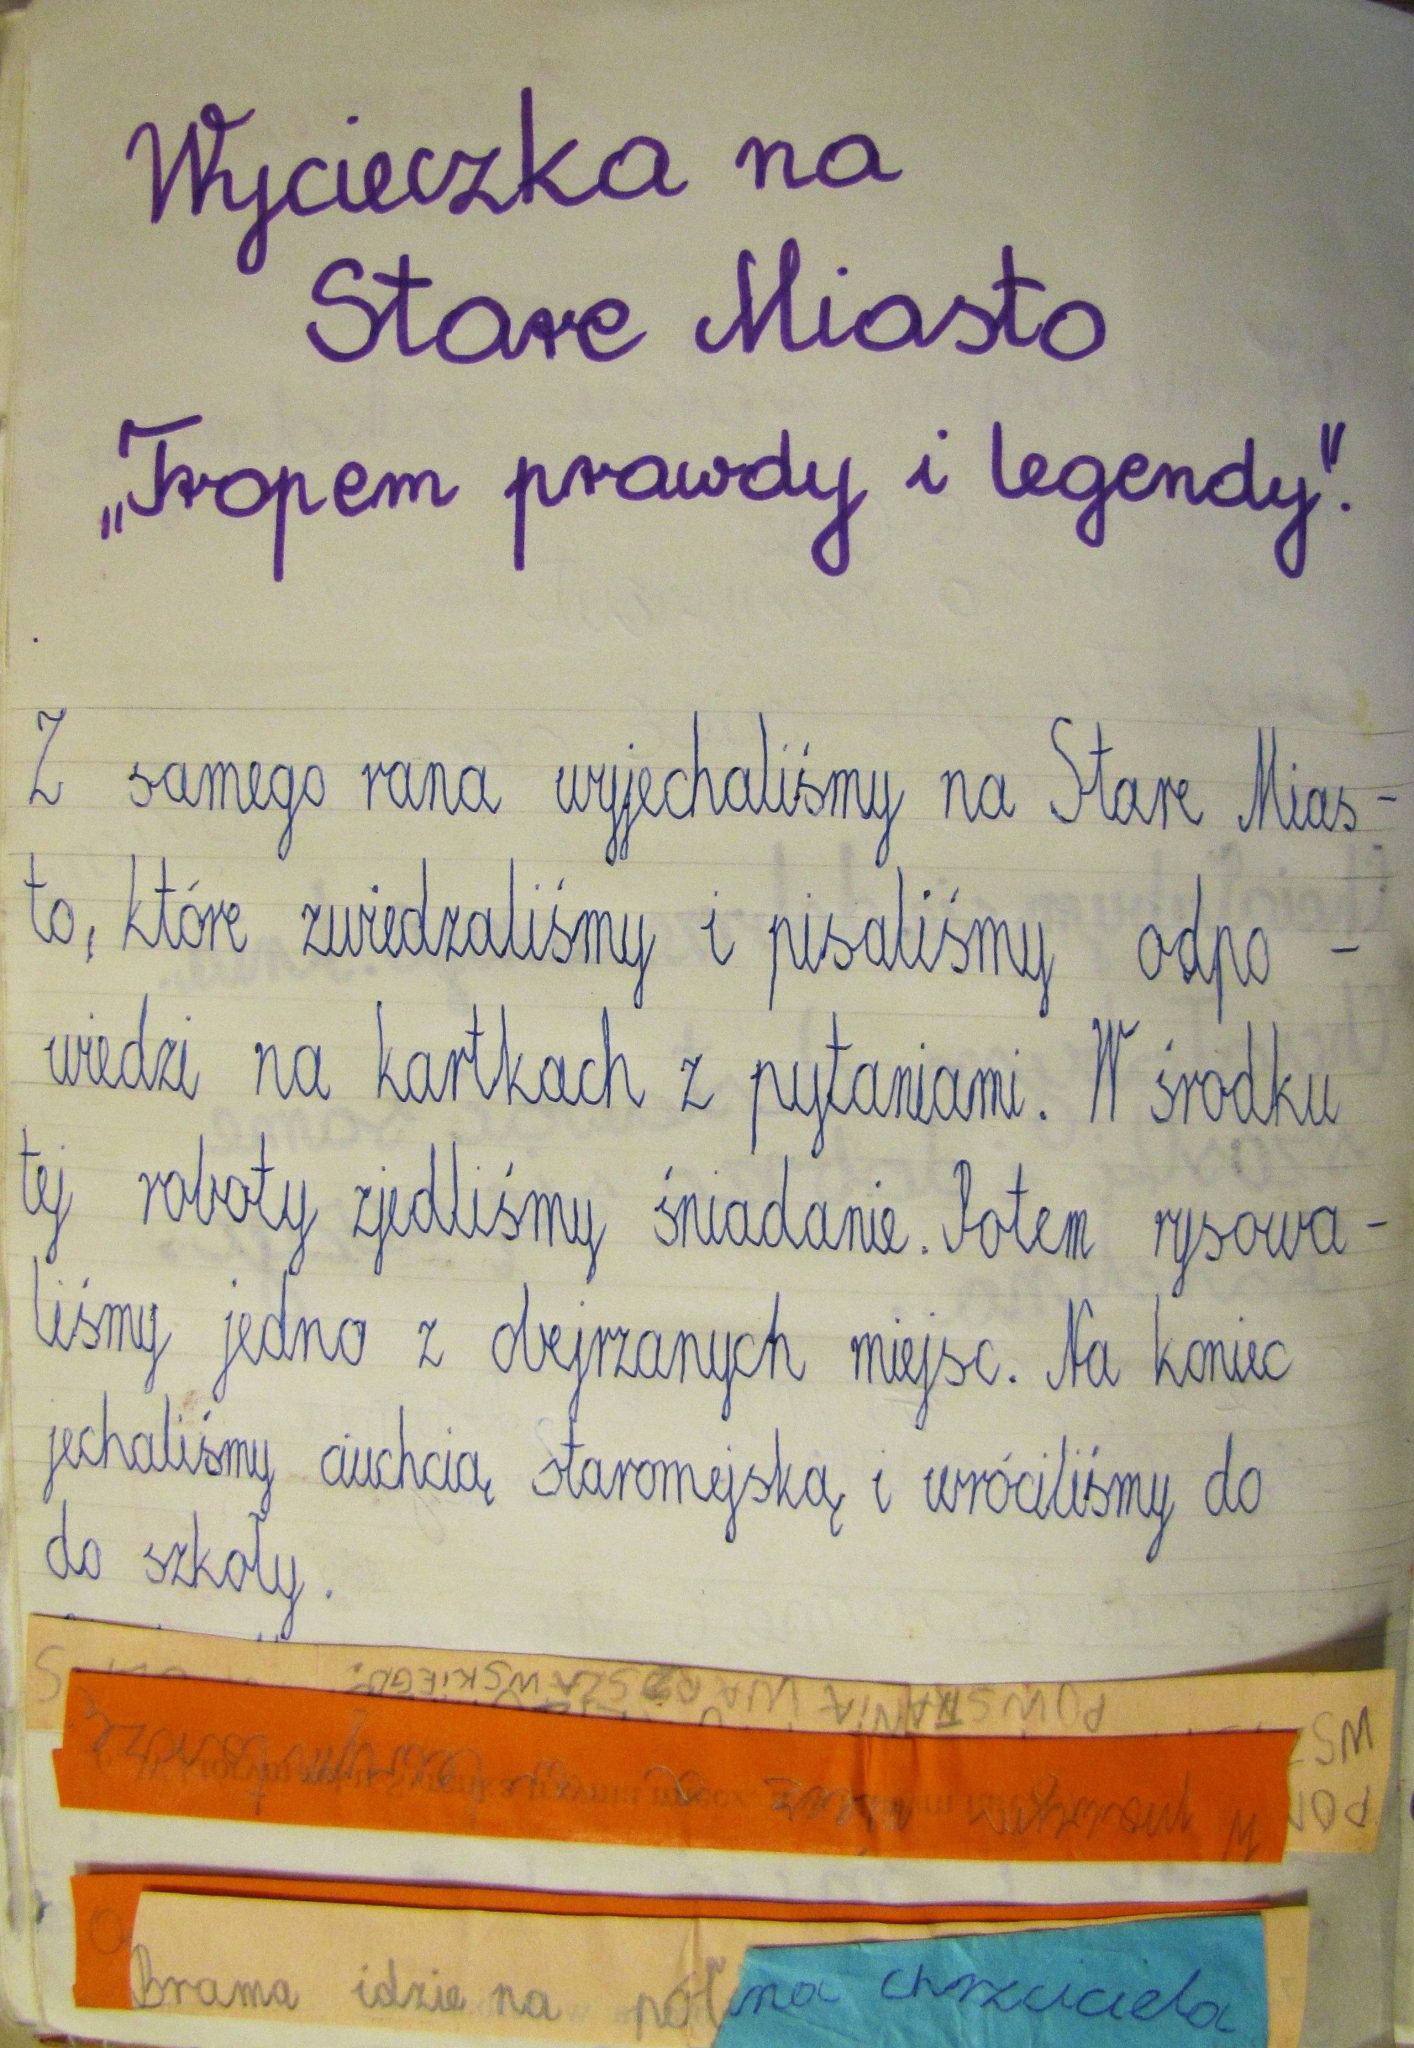 Wycieczka na
Stare Miasto
„Tropem prawdy i legendy".
Z samego rana wyjechaliśmy na Stare Mias-
to, które zwiedzaliśmy i pisaliśmy odpo-
wiedzi na kartkach z pytaniami. W środku
tej roboty zjedliśmy śniadanie. Potem rysowa-
liśmy jedno z obejrzanych miejsc. Na koniec
jechaliśmy ciuchcią staromejską i wróciliśmy do
do szkoły.
POWSTANIA WARSZAWSKIEGO
Brama idzie na
na chrzciciela